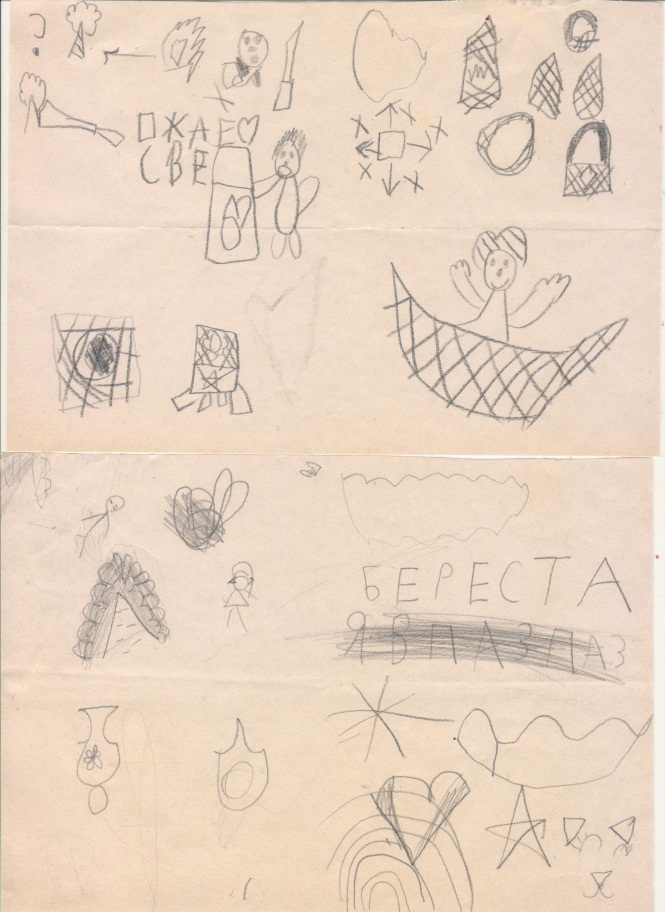 ПЖАЕ
СВЕ
БЕРЕСТА
ЯВПАЗПАЗ